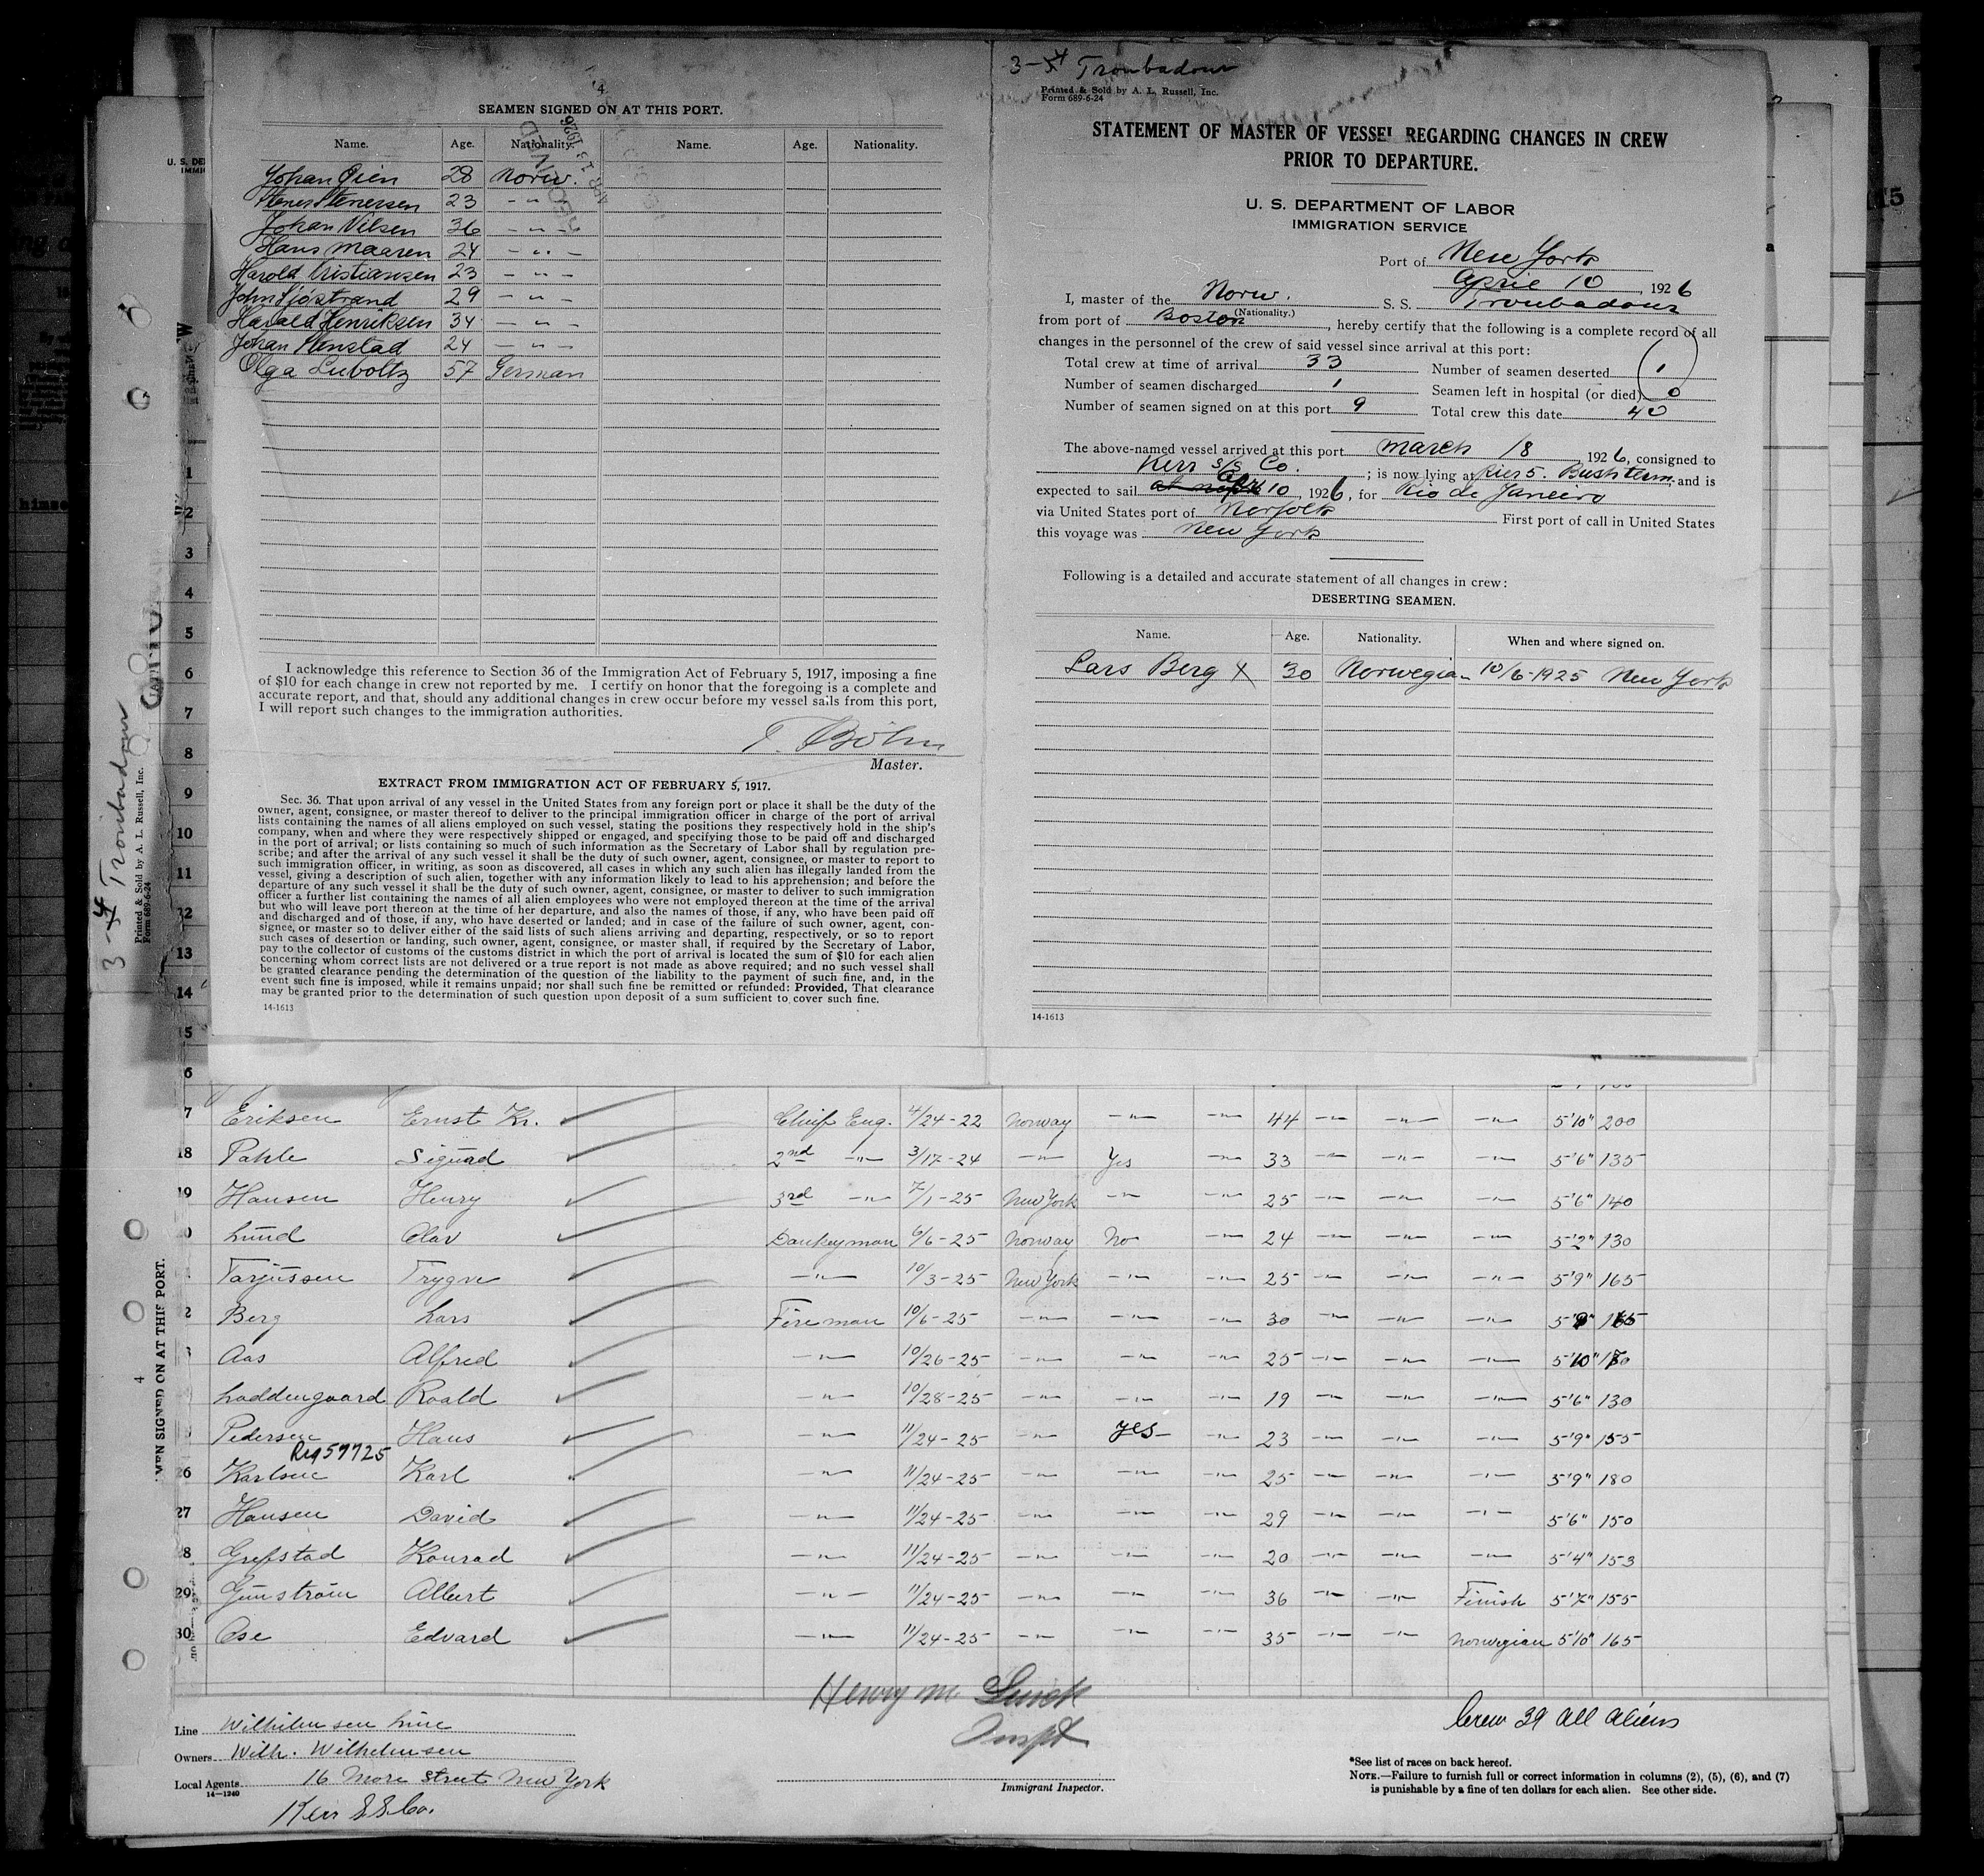 4
SEAMEN SIGNED ON AT THIS PORT.
Name. Age. Nationality. Name. Age. Nationality.
Johan Öien 28 Norw.
Stener Stenersen 23 -"-
Johan Nilsen 36 -"-
Hans Maaren 24 -"-
Harold Kristiansen 23 -"-
John Sjöstrand 29 -"-
Harald Henriksen 34 -"-
Johan Stenstad 24 -"-
Olga Luboltz 57 German
I acknowledge this reference to Section 36 of the Immigration Act of February 5, 1917, imposing a fine
of $10 for each change in crew not reported by me. I certify on honor that the foregoing is a complete and
accurate report, and that, should any additional changes in crew occur before my vessel sails from this port,
I will report such changes to the immigration authorities.
T. Böhn
Master.
EXTRACT FROM IMMIGRATION ACT OF FEBRUARY 5, 1917.
Sec. 36. That upon arrival of any vessel in the United States from any foreign port or place it shall be the duty of the
owner, agent, consignee, or master thereof to deliver to the principal immigration officer in charge of the port of arrival
lists containing the names of all aliens employed on such vessel, stating the positions they respectively hold in the ship's
company, when and where they were respectively shipped or engaged, and specifying those to be paid off and discharged
in the port of arrival; or lists containing so much of such information as the Secretary of Labor shall by regulation pre-
scribe; and after the arrival of any such vessel it shall be the duty of such owner, agent, consignee, or master to report to
such immigration officer, in writing, as soon as discovered, all cases in which any such alien has illegally landed from the
vessel, giving a description of such alien, together with any information likely to lead to his apprehension; and before the
departure of any such vessel it shall be the duty of such owner, agent, consignee, or master to deliver to such immigration
officer a further list containing the names of all alien employees who were not employed thereon at the time of the arrival
but who will leave port thereon at the time of her departure, and also the names of those, if any, who have been paid off
and discharged and of those, if any, who have deserted or landed; and in case of the failure of such owner, agent, con-
signee, or master so to deliver either of the said lists of such aliens arriving and departing, respectively, or so to report
such cases of desertion or landing, such owner, agent, consignee, or master shall, if required by the Secretary of Labor,
pay to the collector of customs of the customs district in which the port of arrival is located the sum of $10 for each alien
concerning whom correct lists are not delivered or a true report is not made as above required; and no such vessel shall
be granted clearance pending the determination of the question of the liability to the payment of such fine, and, in the
event such fine is imposed, while it remains unpaid; nor shall such fine be remitted or refunded: Provided, That clearance
may be granted prior to the determination of such question upon deposit of a sum sufficient to cover such fine.
14-1613
3-4 Troubadour
Printed & Sold by A. L. Russell, Inc.
Form 689-6-24
STATEMENT OF MASTER OF VESSEL REGARDING CHANGES IN CREW
PRIOR TO DEPARTURE.
U. S. DEPARTMENT OF LABOR
IMMIGRATION SERVICE
Port of New York
April 10, 1926
I, master of the Norw. S. S. Troubadour
(Nationality.)
from port of Boston, hereby certify that the following is a complete record of all
changes in the personnel of the crew of said vessel since arrival at this port:
Total crew at time of arrival 33 Number of seamen deserted 1
Number of seamen discharged 1 Seamen left in hospital (or died) 0
Number of seamen signed on at this port 9 Total crew this date 40
The above-named vessel arrived at this port March 18, 1926, consigned to
Kerr S/S Co.; is now lying at Pier 5. Bush term. and is
expected to sail Apr 10, 1926, for Rio de Janeiro
via United States port of Norfolk First port of call in United States
this voyage was New York
Following is a detailed and accurate statement of all changes in crew:
DESERTING SEAMEN.
Name. Age. Nationality. When and where signed on.
Lars Berg X 30 Norwegian 10/6-1925 New York
14-1613
3-4 Troubadour
Printed & Sold by A. L. Russell, Inc.
Form 689-6-24
MEN SIGNED ON AT THIS PORT.
4
7 Eriksen Ernst Kr. Chief Eng. 4/24-22 Norway -"- -"- 44 -"- -"- -"- 5'10" 200
18 Pahle Sigurd 2nd -"- 3/17-24 -"- Yes -"- 33 -"- -"- -"- 5'6" 135
19 Hansen Henry 3rd -"- 7/1-25 New York -"- -"- 25 -"- -"- -"- 5'6" 140
20 Lund Olav Donkeyman 6/6-25 Norway No -"- 24 -"- -"- -"- 5'2" 130
Tarjussen Trygve -"- 10/3-25 New York -"- -"- 25 -"- -"- -"- 5'9" 165
2 Berg Lars Fireman 10/6-25 -"- -"- -"- 30 -"- -"- -"- 5'9" 165
3 Aas Alfred -"- 10/26-25 -"- -"- -"- 25 -"- -"- -"- 5'10" 180
Loddengaard Roald -"- 10/28-25 -"- -"- -"- 19 -"- -"- -"- 5'6" 130
Pedersen Hans -"- 11/24-25 -"- Yes -"- 23 -"- -"- -"- 5'9" 155
Reg 59725
26 Karlsen Karl -"- 11/24-25 -"- -"- -"- 25 -"- -"- -"- 5'9" 180
27 Hansen David -"- 11/24-25 -"- -"- -"- 29 -"- -"- -"- 5'6" 150
28 Grefstad Konrad -"- 11/24-25 -"- -"- -"- 20 -"- -"- -"- 5'4" 153
29 Gunstrom Albert -"- 11/24-25 -"- -"- -"- 36 -"- -"- Finish 5'7" 155
30 Ose Edvard -"- 11/24-25 -"- -"- -"- 35 -"- -"- Norwegian 5'10" 165
Line Wilhelmsen Line
Owners Wilh. Wilhelmsen
Local Agents 16 More Street New York
14-1240
Kerr S.S. Co.
Henry M
Inspt
Immigrant Inspector.
Crew 39 All Aliens
*See list of races on back hereof.
NOTE.—Failure to furnish full or correct information in columns (2), (5), (6), and (7)
is punishable by a fine of ten dollars for each alien. See other side.